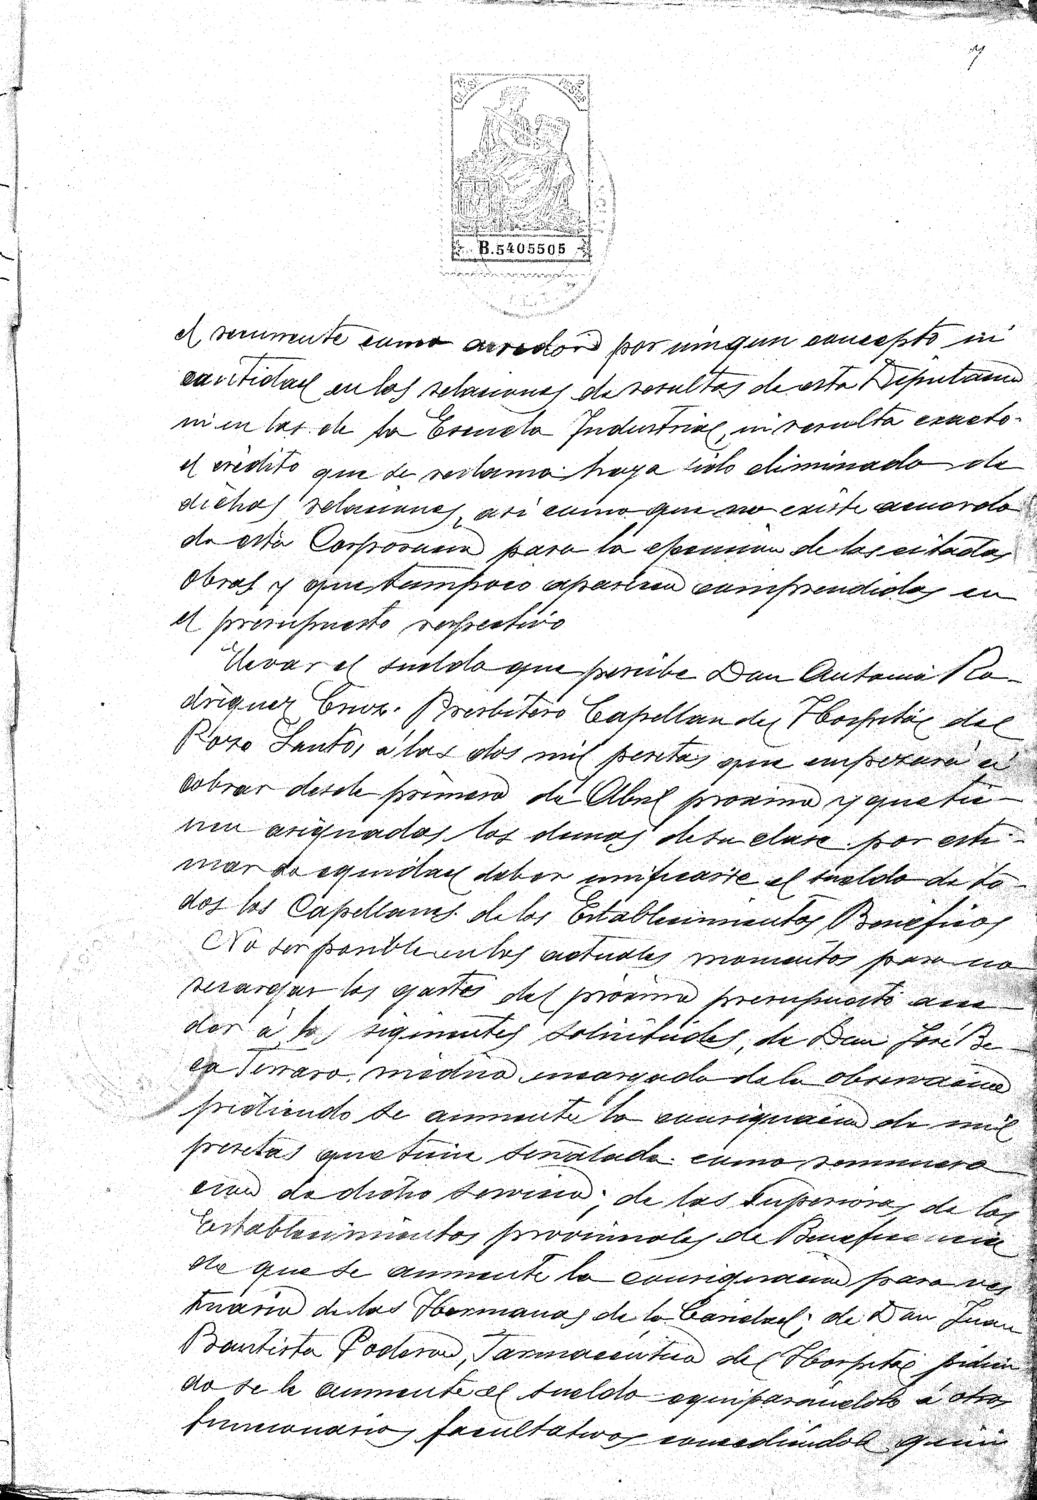 7
7ª CLASE 2 PESETAS
B.5405505
el recurrente como acredor por ningun concepto ni
cantidad en las relaciones de resultas de esta Diputacion
ni en las de la Escuela Industrial, ni resulta exacto
el crédito que se reclama haya sido eliminado de
dichas relaciones, asi como que no existe acuerdo
de esta Corporacion para la ejecucion de las citadas
obras y que tampoco aparecen comprendidas en
el presupuesto respectivo
Elevar el sueldo que percibe Don Antonio Ro-
driguez Cruz. Presbitero Capellan del Hospital del
Pozo Santo, á las dos mil pesetas que empezará á
cobrar desde primero de Abril proximo y que tie-
nen asignadas los demas de su clase por esti-
mar de equidad deber unificarse el sueldo de to-
dos los Capellanes de los Establecimientos Beneficos
No ser posible en los actuales momentos para no
recargar los gastos del próximo presupuesto acce-
der á las siguientes solicitudes, de Don José Be-
ca Terraro, médico encargado de la observacion
pidiendo se aumente la consignacion de mil
pesetas que tiene señalada como remunera
cion de dicho servicio; de las Superioras de los
Establecimientos provinciales de Beneficencia
de que se aumente la consignacion para ves
tuario de las Hermanas de la Caridad; de Don Juan
Bautista Poderon, Farmacéutico del Hospital pidien
do se le aumente el sueldo equiparándolo á otros
funcionarios facultativos concediéndole quin